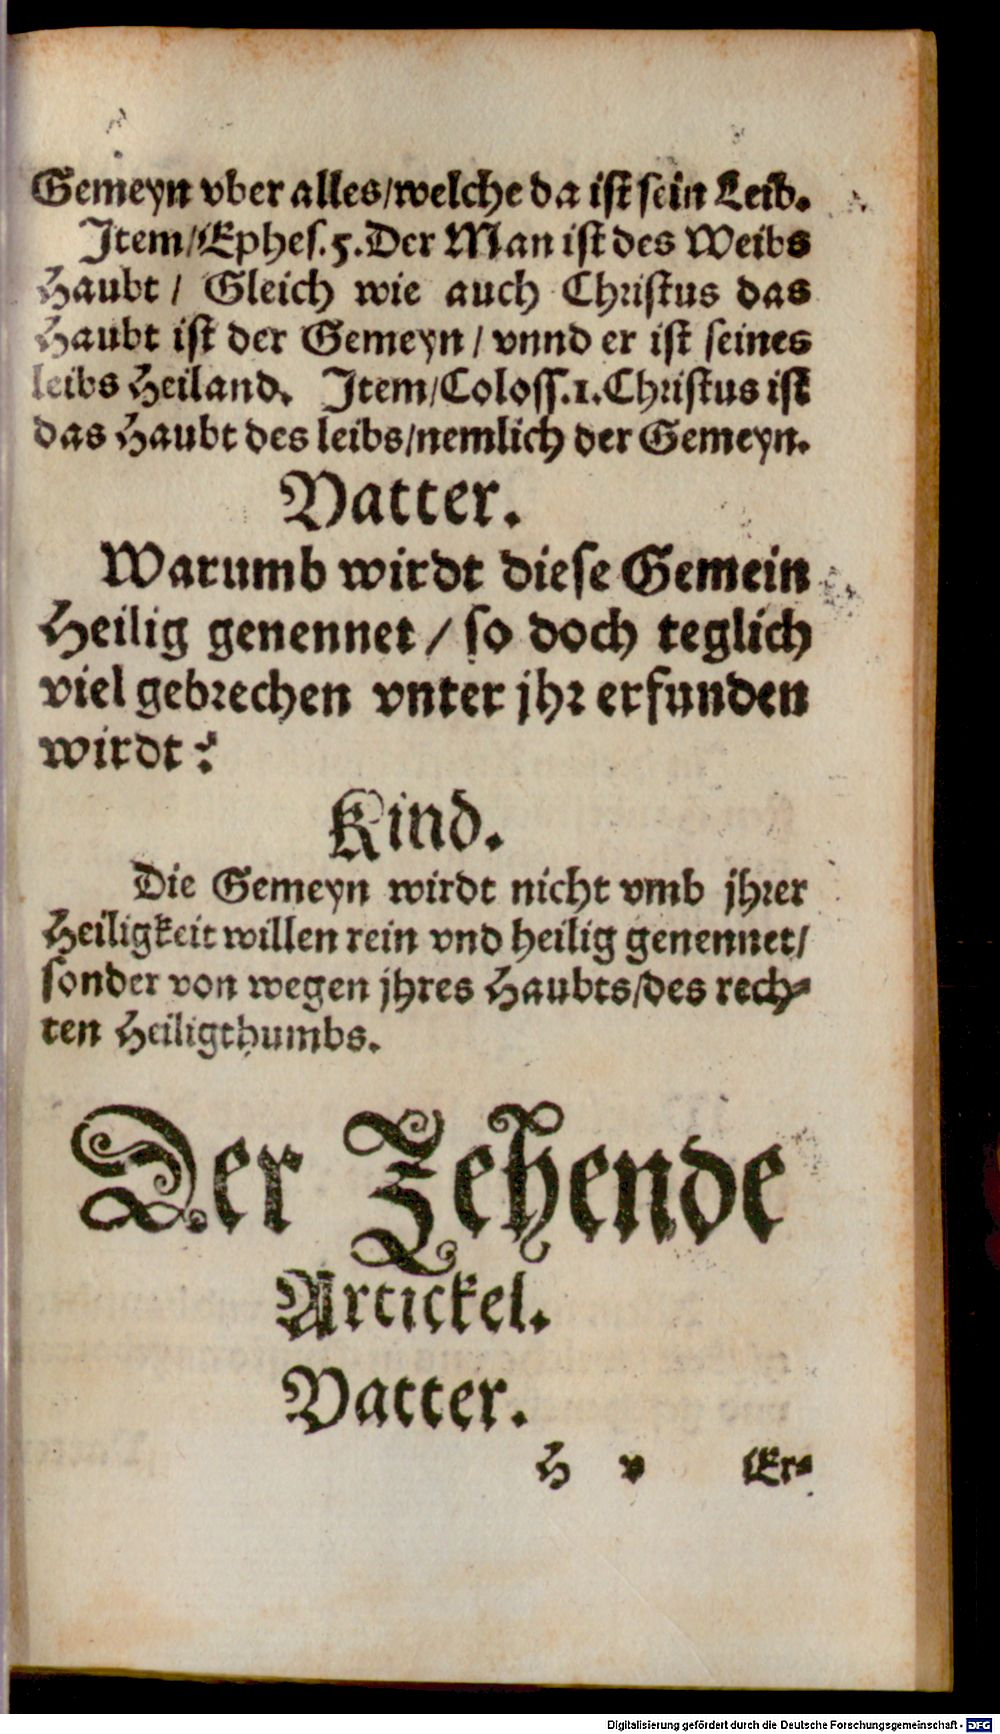 Gemeyn vber alles/welche da ist sein Leib.
Item/Ephes.5.Der Man ist des Weibs
Haubt / Gleich wie auch Christus das
Haubt ist der Gemeyn / vnnd er ist seines
leibs Heiland. Item/Coloss.1.Christus ist
das Haubt des leibs/nemlich der Gemeyn.
Vatter.
Warumb wirdt diese Gemein
Heilig genennet / so doch teglich
viel gebrechen vnter jhr erfunden
wirdt?
Kind.
Die Gemeyn wirdt nicht vmb jhrer
Heiligkeit willen rein vnd heilig genennet/
sonder von wegen jhres Haubts/des rech-
ten Heiligthumbs.
Der Zehende
Artickel.
Vatter.
H v Er-
Digitalisierung gefördert durch die Deutsche Forschungsgemeinschaft - DFG